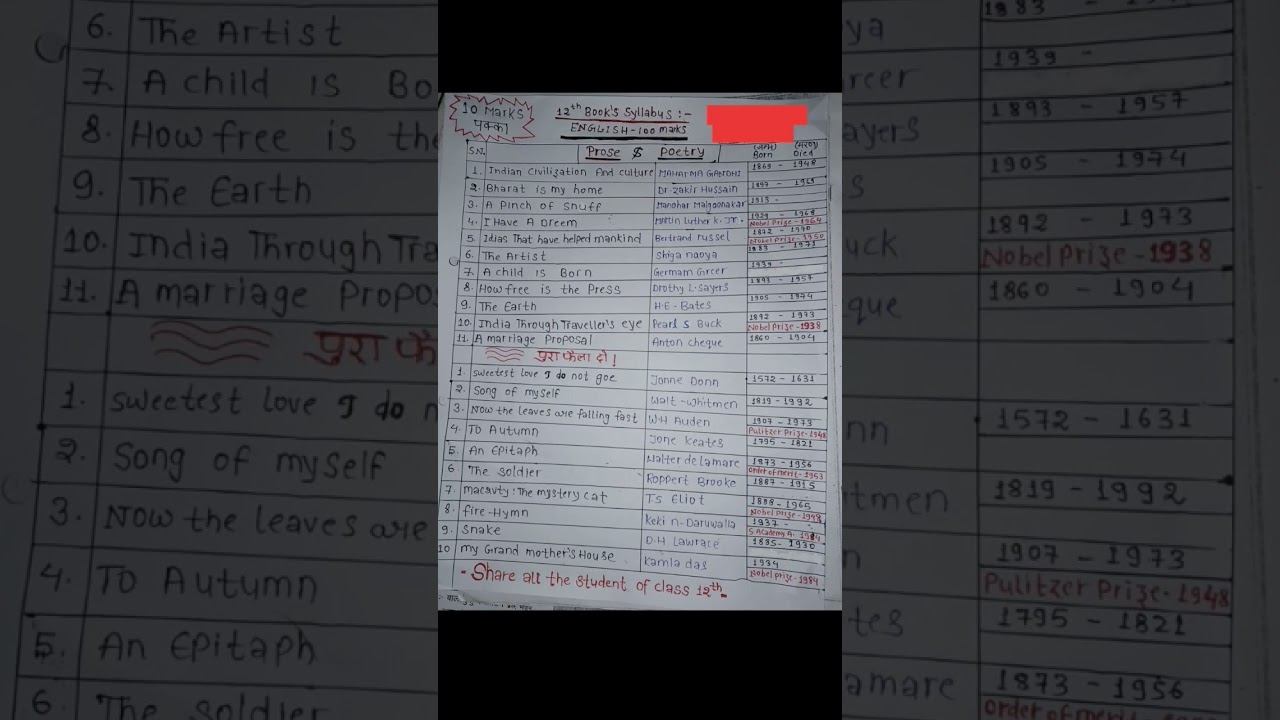 10 Marks
पक्का
12th Book's Syllabus :-
ENGLISH - 100 marks
S.N. Prose $ Poetry (जन्म) Born (मरण) Died
1. Indian Civilization And culture MAHATMA GANDHI 1869 - 1948
2. Bharat is my home Dr. Zakir Hussain 1897 - 1969
3. A Pinch of Snuff Manohar Malgoonakar 1913 -
4. I Have A Dreem Martin Luther K. Jr. 1929 - 1968
Nobel Prize - 1964
5. Idias That have helped mankind Bertrand russel 1872 - 1970
Nobel Prize - 1950
6. The Artist Shiga naoya 1883 - 1971
7. A child is Born Germam Greer 1939 -
8. How free is the Press Drothy L. Sayers 1893 - 1957
9. The Earth H.E - Bates 1905 - 1974
10. India Through Traveller's eye Pearl S Buck 1892 - 1973
Nobel Prize - 1938
11. A marriage Proposal Anton cheque 1860 - 1904
पुरा फैला दो!
1. sweetest love I do not goe Jonne Donn 1572 - 1631
2. Song of myself Walt - Whitmen 1819 - 1992
3. Now the leaves are falling fast W.H Auden 1907 - 1973
Pulitzer Prize - 1948
4. TO Autumn Jone Keates 1795 - 1821
5. An Epitaph Walter de lamare 1873 - 1956
Order of merit - 1953
6 The soldier Roppert Brooke 1887 - 1915
7. macavty : The mystery cat T.S Eliot 1888 - 1965
Nobel Prize - 1948
8. fire - Hymn Keki n - Daruwalla 1937 -
S Academy A. 1984
9. Snake D.H Lawrace 1885 - 1930
10 my Grand mother's House Kamla das 1934
Nobel prize - 1984
- Share all the student of class 12th -